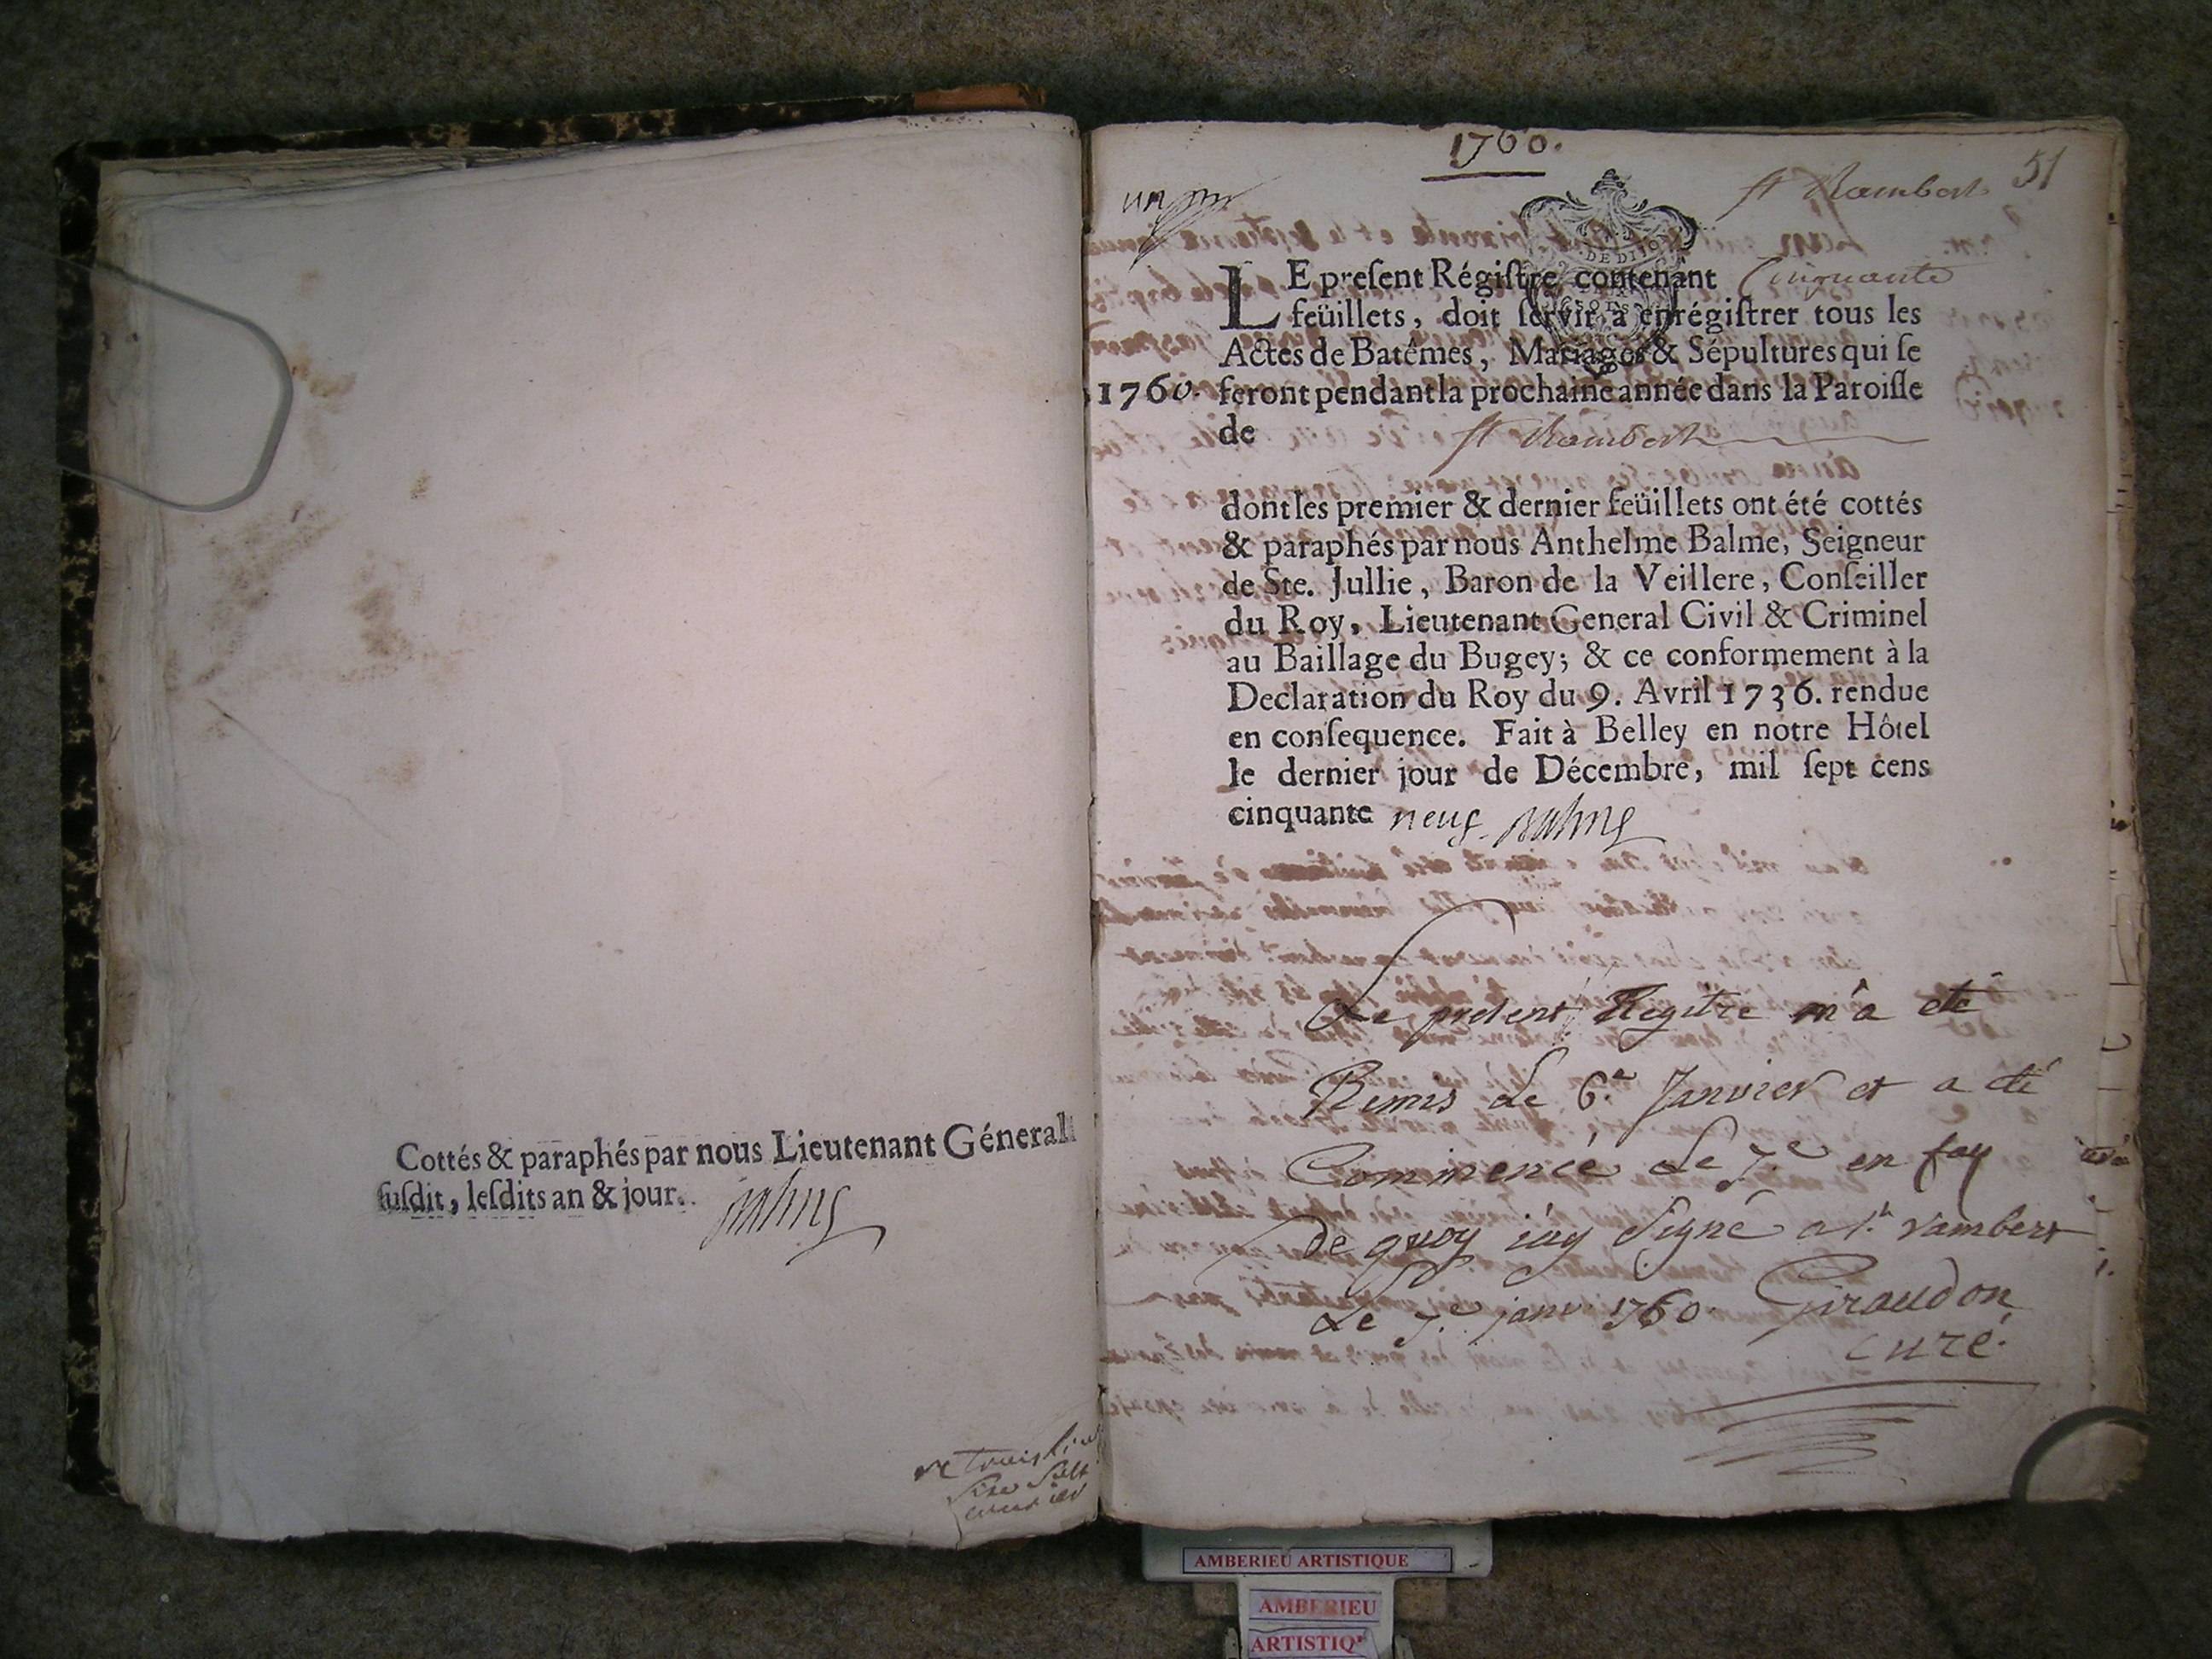 Cottés & paraphés par nous Lieutenant Géneral
ſuſdit, leſdits an & jour. Balme
1760.
un
St Rambert 51
LE preſent Régiſtre contenant Cinquante
feüillets, doit ſervir à enrégiſtrer tous les
Actes de Batêmes, Mariages & Sépultures qui ſe
1760. feront pendant la prochaine année dans la Paroiſſe
de St Rambert
dont les premier & dernier feüillets ont été cottés
& paraphés par nous Anthelme Balme, Seigneur
de Ste. Jullie, Baron de la Veillere, Conſeiller
du Roy, Lieutenant General Civil & Criminel
au Baillage du Bugey; & ce conformement à la
Declaration du Roy du 9. Avril 1736. rendue
en conſequence. Fait à Belley en notre Hôtel
le dernier jour de Décembre, mil ſept cens
cinquante neuf. Balme
Le present Regitre m'a eté
Remis Le 6.e Janvier et a eté
Commencé Le 7.e en foy
de quoy j'ay Signé a St rambert
Le 7.e janv. 1760. Giraudon
curé.
AMBERIEU ARTISTIQUE
AMBERIEU
ARTISTIQ